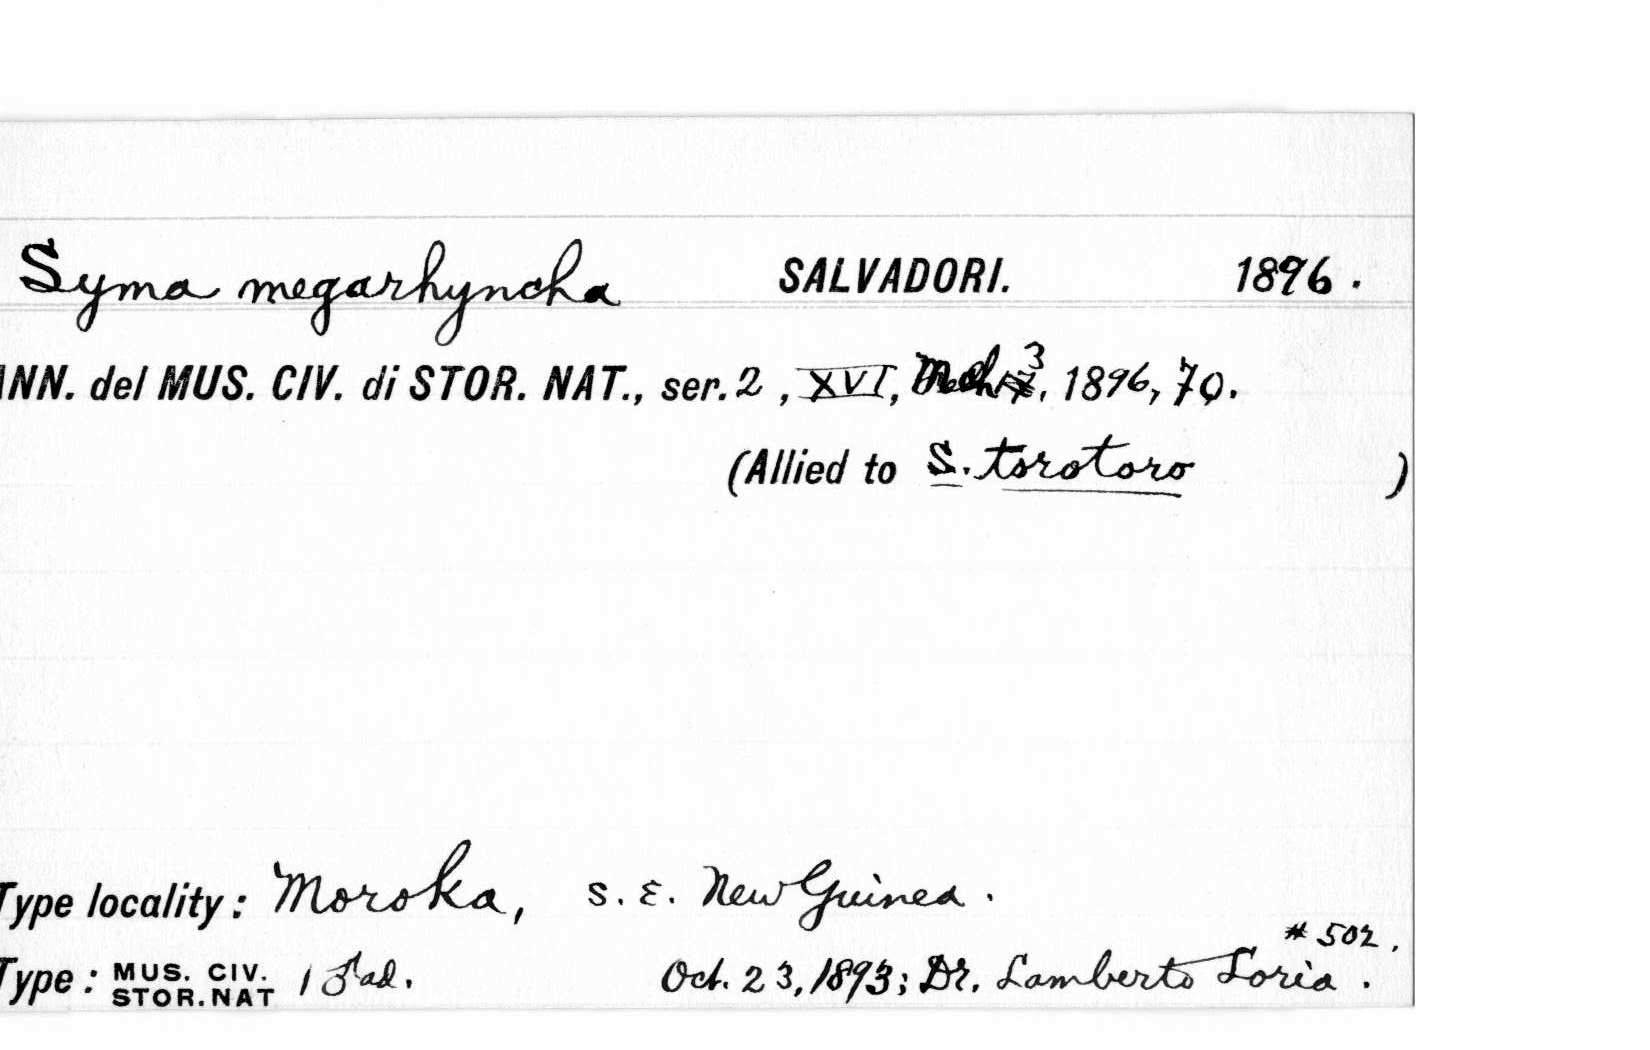 Syma megarhyncha SALVADORI. 1896.
ANN. del MUS. CIV. di STOR. NAT., ser. 2, XVI, 3, 1896, 70.
(Allied to S. torotoro )
Type locality: Moroka, S. E. New Guinea.
# 502.
Type: MUS. CIV. STOR. NAT 1 ♂ ad. Oct. 23, 1893; Dr. Lamberto Loria.